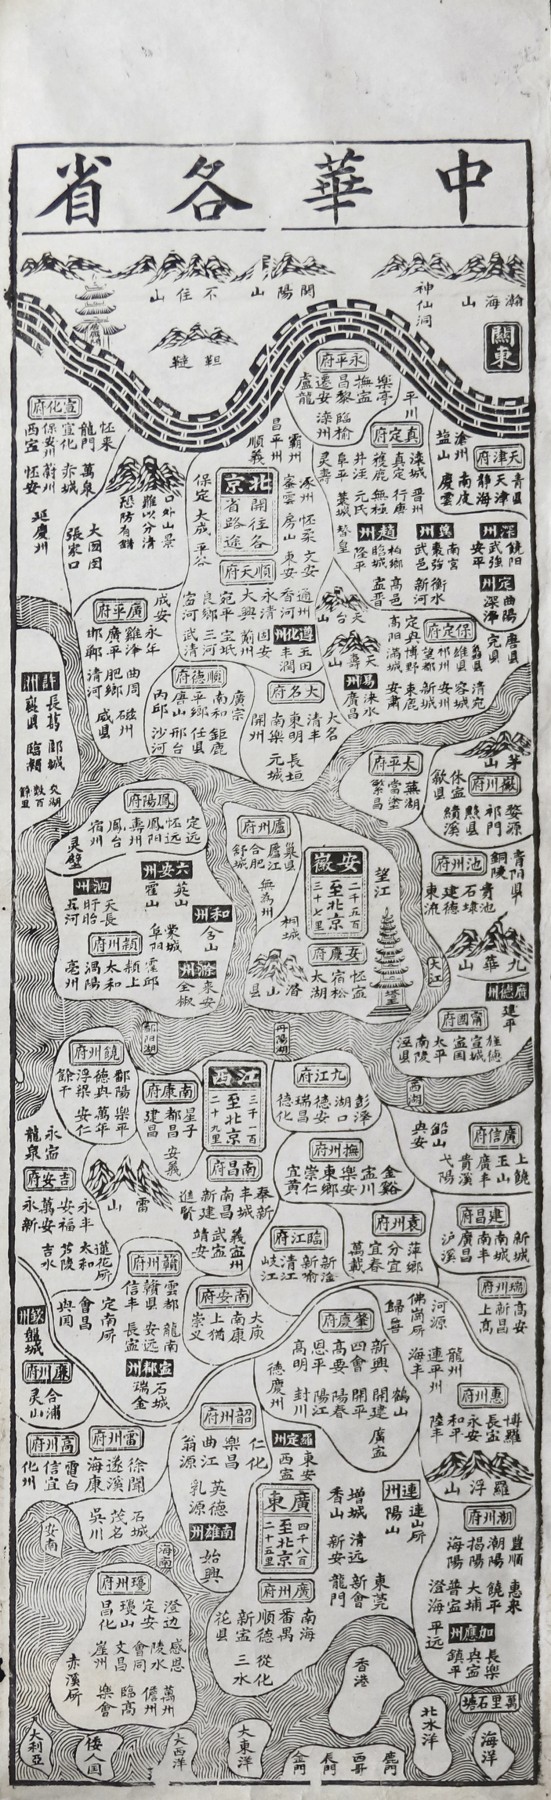 中華各省
瀚海山
神仙洞
關東
開陽山
不住山
韃靼
永平府
樂亭
撫盗
昌黎
遷安
盧龍
臨榆
灤州
平川
天津府
青县
天津
静海
滄州
盐山
南皮
慶雲
真定府
滦城
真定
獲鹿
井泾
阜平
灵寿
晋州
行唐
無極
元氏
藁城
賛皇
宣化府
怀来
龍門
宣化
保安州
西宣
萬泉
赤城
蔚州
怀安
延慶州
口外山景
難以分清
恐防有錯
大囫囵
張家口
北京
開往各
省路途
霸州
昌平州
順義
涿州
密雲
保定
怀柔
房山
大成
文安
東安
平谷
順天府
通州
香河
永清
大興
宛平
良鄉
固安
蓟州
宝坻
三河
武清
趙州
柏鄉
臨城
隆平
高邑
冀州
南宮
棗強
武邑
衡水
新河
深州
饒阳
武強
安平
定州
曲陽
深泽
遵化州
玉田
丰潤
天台山
天寿山
易州
涞水
廣昌
保定府
雄县
祁州
望都
博野
定興
高阳
唐县
完县
清宛
容城
安州
新城
满城
安肃
廣平府
成安
永年
雞泽
廣平
邯鄲
曲周
肥鄉
清河
磁州
威县
順德府
廣宗
南和
平鄉
唐山
内邱
鉅鹿
任县
邢台
沙河
大名府
大名
清丰
東明
南樂
開州
長垣
元城
許州
長葛
郾城
襄县
臨潁
太平府
蕪湖
當塗
繁昌
茅山
徽川府
婺源
祁門
黟县
績溪
休宣
歙县
鳳陽府
定远
怀远
鳳阳
鳳台
宿州
灵璧
廬州府
巢县
廬江
合肥
舒城
無為州
桐城
六安州
英山
霍山
泗州
天長
盱眙
五河
和州
含山
潁州府
潁上
太和
渦陽
亳州
蒙城
阜阳
霍邱
滁州
来安
全椒
安徽
二千五百
至北京
三十七里
望江
安慶府
怀宣
宿松
太湖
潛山县
池州府
青阳县
銅陵
貴池
石埭
建德
東流
九華山
大江
廣德州
建平
甯國府
旌德
宣城
宣国
太平
南陵
泾县
鄱阳湖
丹陽湖
高湖
饒州府
鄱阳
德興
浮梁
餘干
樂平
萬年
安仁
南康府
星子
都昌
建昌
安義
江西
三千一百
至北京
二十九里
九江府
彭泽
湖口
德安
瑞昌
德化
廣信府
上饒
玉山
廣丰
貴溪
弋阳
鉛山
興安
撫州府
金谿
宣川
樂安
東鄉
崇仁
宜黄
南昌府
奉新
丰城
南昌
新建
進賢
義宣州
武宣
靖安
吉安府
永丰
安福
萬安
永新
永宣
龍泉
蓮花所
太和
庐陵
吉水
雷山
建昌府
新城
南城
南丰
廣昌
泸溪
袁州府
萍鄉
分宜
宜春
萬載
臨江府
新淦
新喻
清江
峡江
瑞州府
高安
新昌
上高
贛州府
雲都
贛县
信丰
龍南
安远
長宣
定南所
會昌
興国
南安府
大庾
南康
上猶
崇义
宣都州
石城
瑞金
廉川府
合浦
灵山
肇慶府
新興
四會
高要
恩平
高明
德慶州
鶴山
開建
開平
陽春
陽江
封川
廣宣
佛崗所
河源
歸善
龍川
連平州
海丰
惠州府
博羅
長宣
永安
和平
陸丰
羅浮山
高州府
電白
信宜
化州
雷州府
徐聞
遂溪
海康
石城
茂名
吳川
韶州府
仁化
樂昌
曲江
翁源
英德
乳源
羅定州
東安
西宣
南雄州
始興
廣東
四千八百
至北京
二十五里
增城
香山
清远
新安
東莞
新會
龍門
連州
連山所
陽山
潮州府
豐順
潮陽
揭陽
海陽
惠来
饒平
大埔
普宣
澄海
平远
加應州
長樂
興宣
鎮平
廣州府
南海
番禺
順德
新宣
花县
從化
三水
安南
海南
瓊州府
澄边
定安
瓊山
昌化
感恩
陵水
會同
文昌
崖州
萬州
儋州
臨高
樂會
赤溪所
香港
萬里石塘
大利亞
倭人国
大西洋
大東洋
金門
長門
西哥
鹿門
北冰洋
海洋